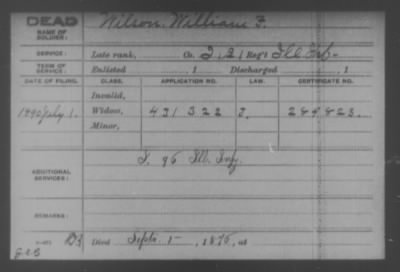 DEAD Wilson, William F.
NAME OF SOLDIER:
SERVICE: Late rank, Co. I, 21 Reg't Ill Inf.
TERM OF SERVICE: Enlisted , 1 Discharged , 1
DATE OF FILING. CLASS. APPLICATION NO. LAW. CERTIFICATE NO.
Invalid,
1890 July 1. Widow, 431 322 284823.
Minor,
ADDITIONAL SERVICES: I. 96 Ill. Inf.
REMARKS:
Died Septr. 1, 1875, at